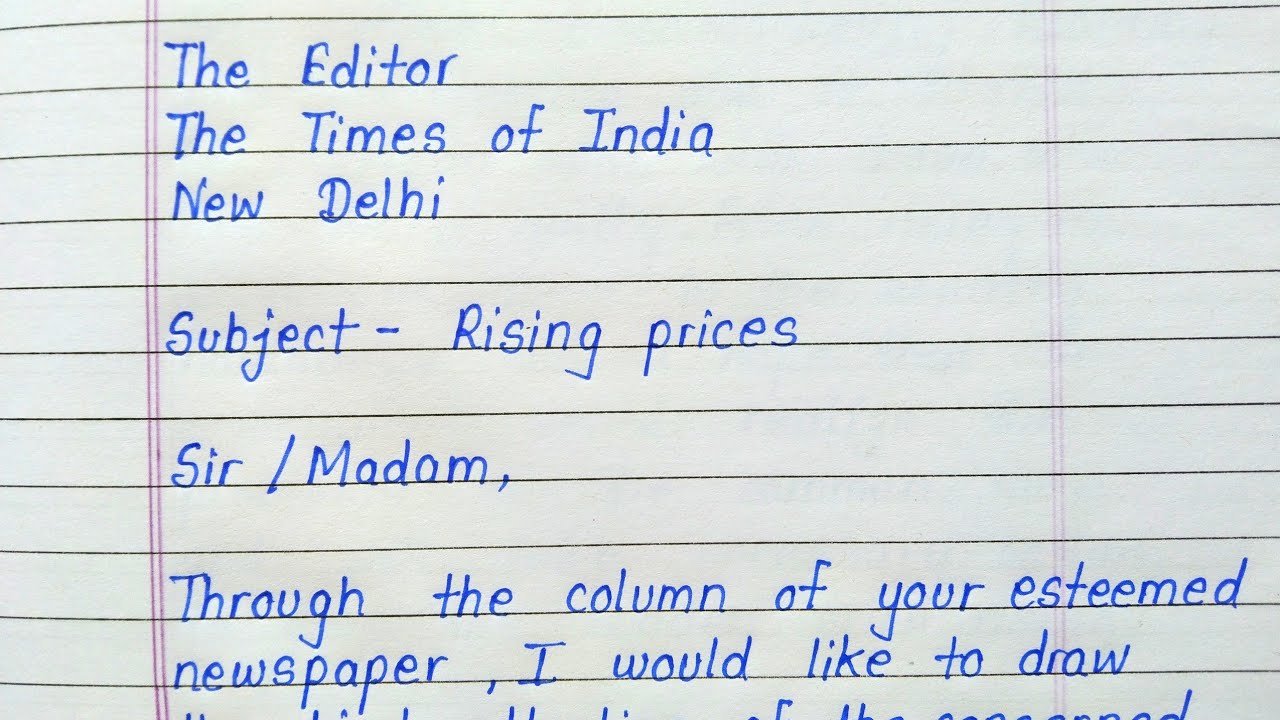 The Editor
The Times of India
New Delhi
Subject - Rising prices
Sir / Madam,
Through the column of your esteemed
newspaper, I would like to draw
of the concerned